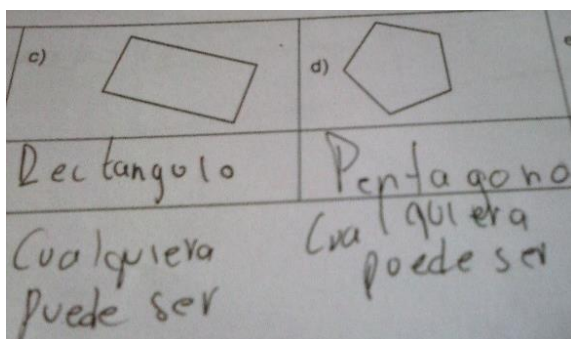 c)
d)
Rectangolo
Pentagono
Cualquiera
puede ser
Cualquiera
poede ser